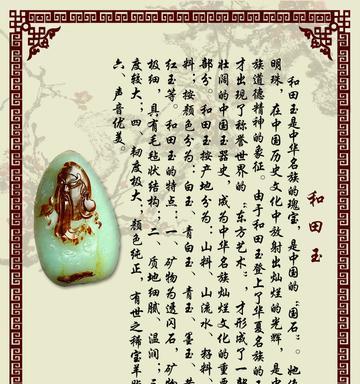 和田玉
和田玉是中华名族的瑰宝，是中国的“国石”。她
明珠，在中国历史文化中放射出灿烂的光辉，是中
族道德精神的象征。由于和田玉登上了华夏名族的
才出现了称誉世界的“东方艺术”，才形成了一部
壮阔的中国玉器史，成为中华名族灿烂文化的重要
部分。和田玉按产地分为：山料；山流水、籽料
料；按颜色分为：白玉、青白玉、青玉、墨玉、黄
红玉等。 和田玉的特点：一、矿物为透闪石，矿物
极细，具有毛毡状结构；二、质地细腻、温润；三
度较大；四、韧度极大、颜色纯正，有世之稀宝羊
六、声音优美。